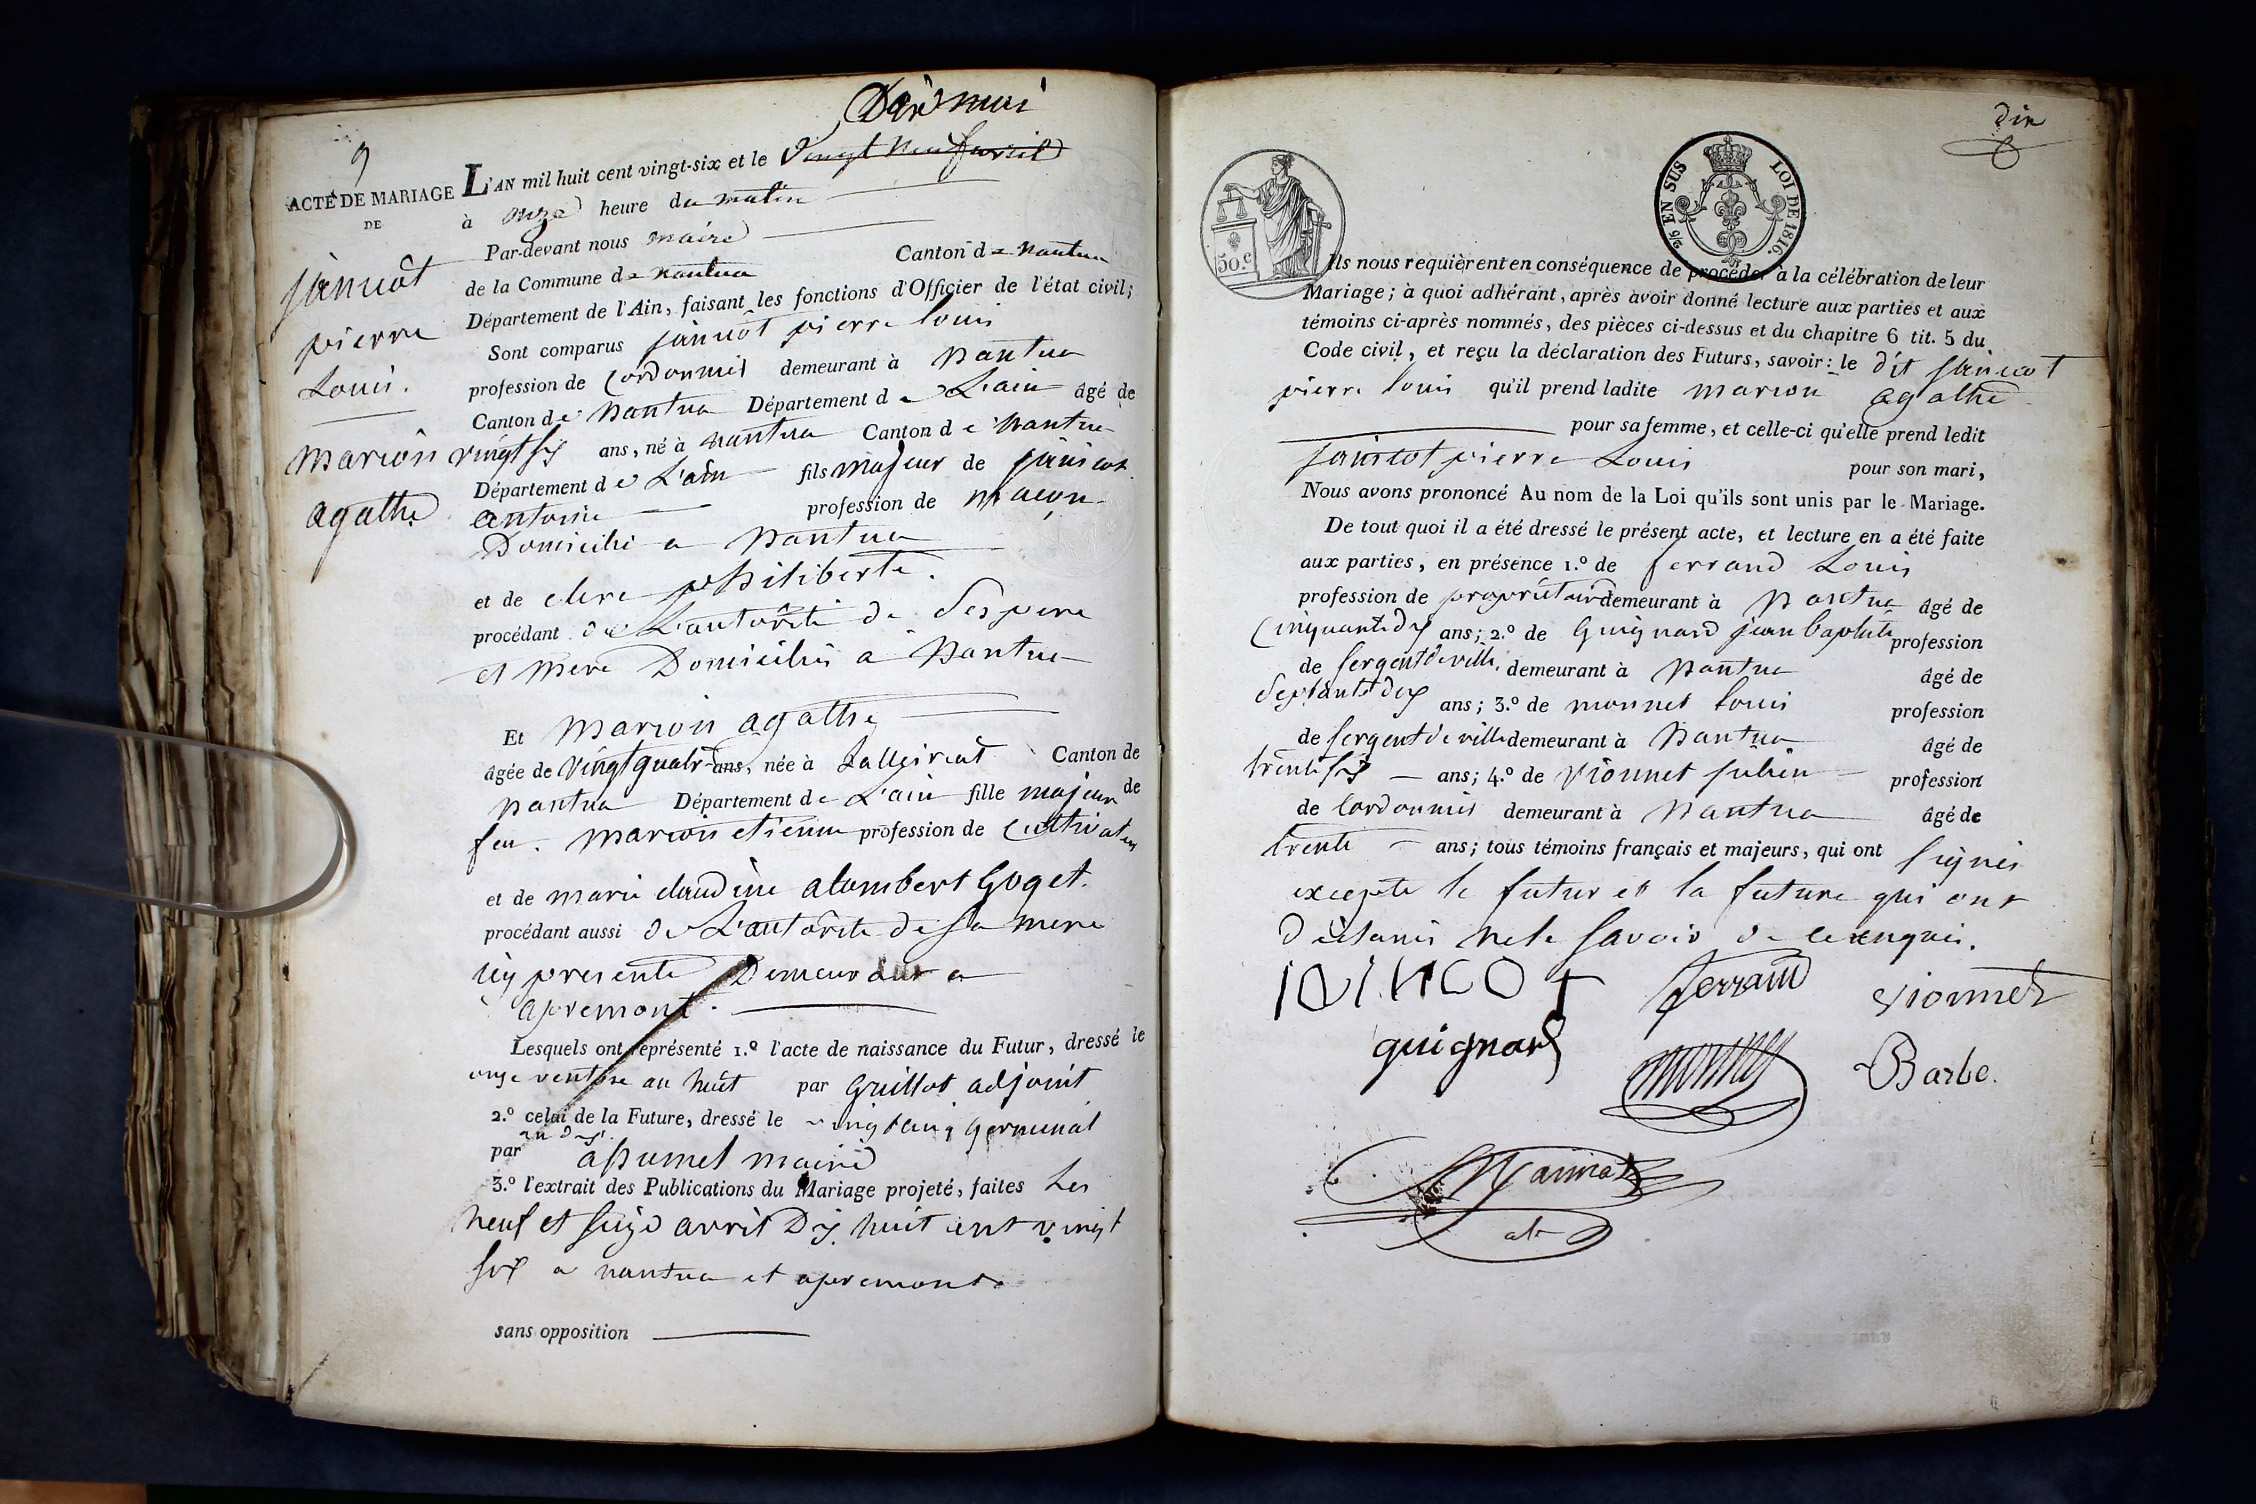 9
Dix mai
ACTE DE MARIAGE
DE
janicot
pierre
Louis.
marion
agathe
L'AN mil huit cent vingt-six et le vingt neuf avril
à onze heure du matin
Par-devant nous maire
de la Commune de nantua Canton de nantua
Département de l'Ain, faisant les fonctions d'Officier de l'état civil;
Sont comparus janicot pierre louis
profession de Cordonnier demeurant à nantua
Canton de nantua Département de L'ain âgé de
vingt six ans, né à nantua Canton de nantua
Département de L'ain fils majeur de janicot
antoine profession de maçon
Domicilié a nantua
et de clere philiberte.
procédant de L'autorité de Ses pere
et mere Domiciliés a nantua
Et marion agathe
âgée de vingt quatre ans, née à Lalleiriat Canton de
nantua Département de L'ain fille majeur de
feu. marion etienne profession de Cultivateur
et de marie claudine alombert Goget.
procédant aussi de L'autorité de sa mere
icy presente Demeurant a
apremont.
Lesquels ont représenté 1.º l'acte de naissance du Futur, dressé le
onze ventose an huit par Guillot adjoint
2.º celui de la Future, dressé le vingt cinq germinal
an dix
par maire
3.º l'extrait des Publications du Mariage projeté, faites Les
neuf et seize avril Dix huit cent vingt
six a nantua et apremont.
sans opposition
dix
2/6 EN SUS LOI DE 1816.
50.c
Ils nous requièrent en conséquence de procéder à la célébration de leur
Mariage; à quoi adhérant, après avoir donné lecture aux parties et aux
témoins ci-après nommés, des pièces ci-dessus et du chapitre 6 tit. 5 du
Code civil, et reçu la déclaration des Futurs, savoir: le dit janicot
pierre louis qu'il prend ladite marion agathe
pour sa femme, et celle-ci qu'elle prend ledit
janicot pierre Louis pour son mari,
Nous avons prononcé Au nom de la Loi qu'ils sont unis par le Mariage.
De tout quoi il a été dressé le présent acte, et lecture en a été faite
aux parties, en présence 1.º de ferrand Louis
profession de propriétaire demeurant à nantua âgé de
Cinquante dix ans; 2.º de Guignard jean baptiste profession
de sergent de ville, demeurant à nantua âgé de
Septante dix ans; 3.º de monnet louis profession
de sergent de ville demeurant à nantua âgé de
trente six ans; 4.º de vionnet julien profession
de Cordonnier demeurant à nantua âgé de
trente ans; tous témoins français et majeurs, qui ont signés
excepte le futur et la future qui ont
déclarés ne le savoir de ce enquis.
JANICOT ferrand vionnet
guignard monnet Barbe.